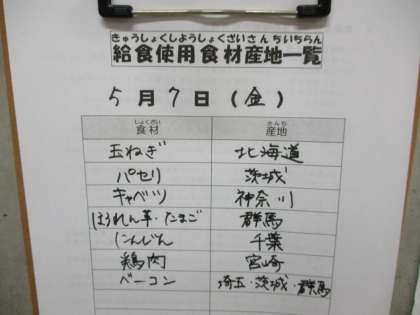 きゅうしょくしようしょくざいさんちいちらん
給食使用食材産地一覧
5月7日(金)
しょくざい さんち
食材 産地
玉ねぎ 北海道
パセリ 茨城
キャベツ 神奈川
ほうれん草・たまご 群馬
にんじん 千葉
鶏肉 宮崎
ベーコン 埼玉・茨城・群馬